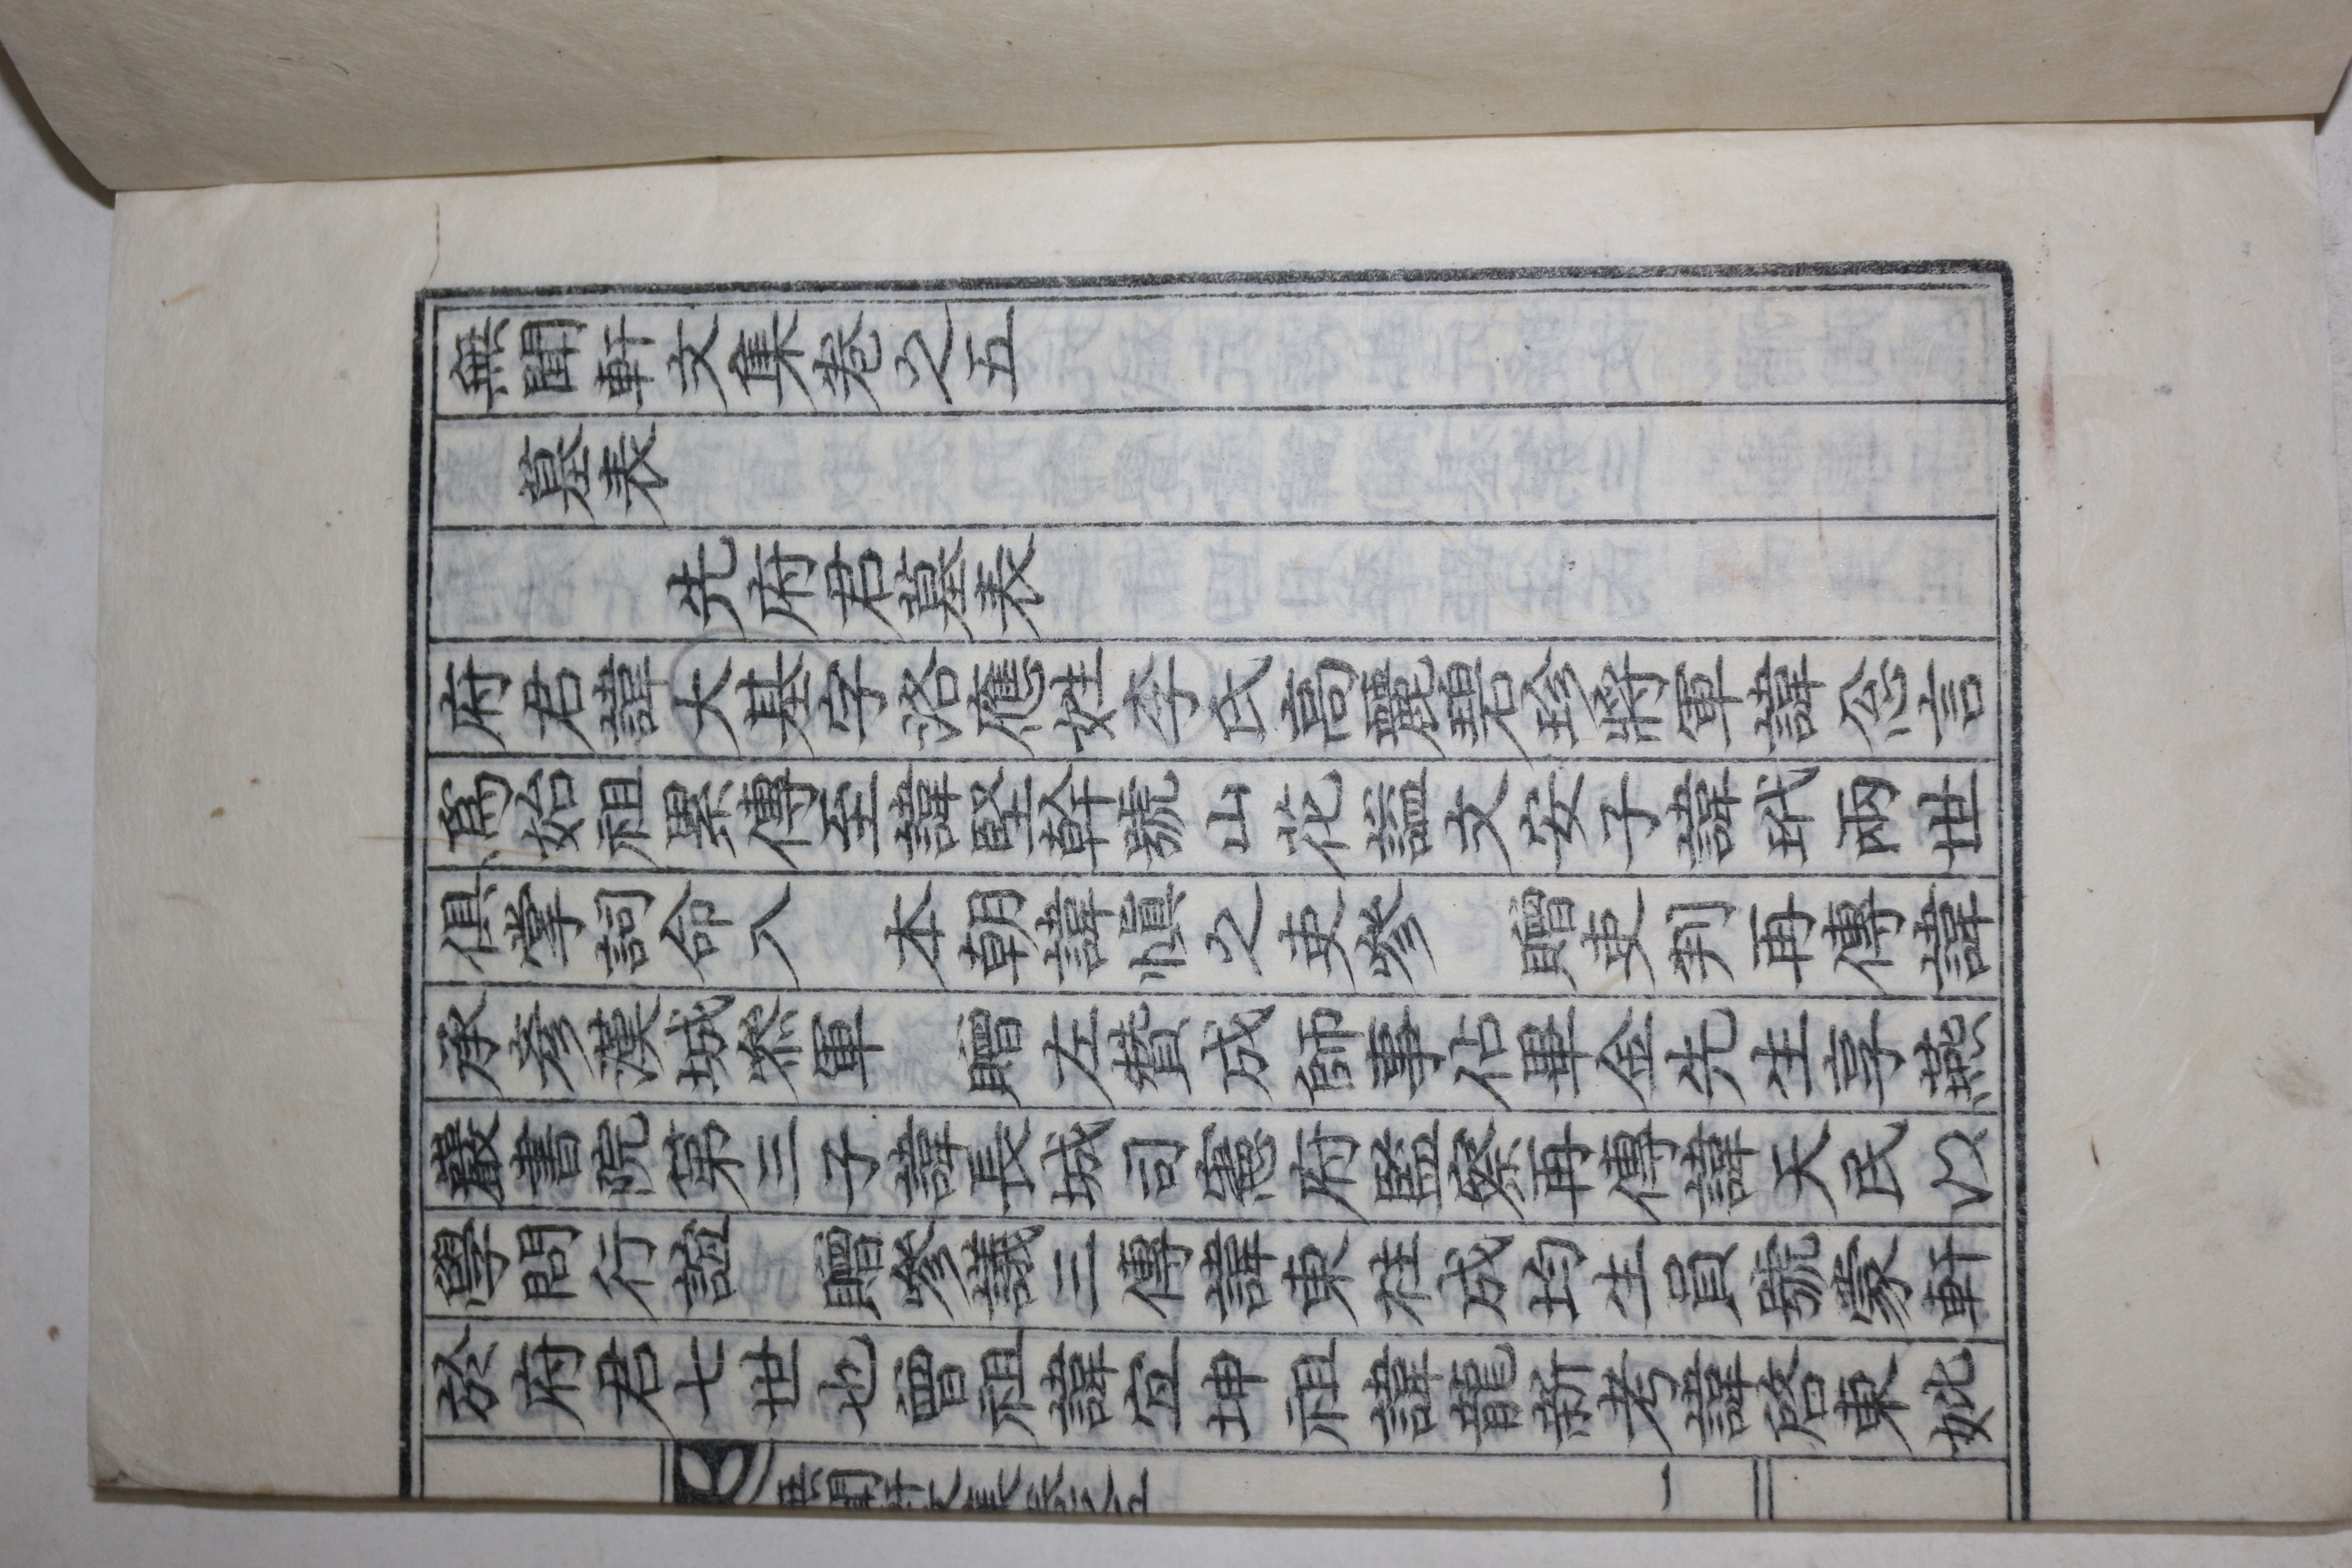 無聞軒文集卷之五
墓表
先府君墓表
府君諱大基字洛應姓李氏高麗碧珍將軍諱忩言
爲始祖累傳至諱堅幹號山花諡文安子諱玳兩世
俱掌詞命入 本朝諱愼之吏參 贈吏判再傳諱
承彦漢城叅軍 贈左贊成師事佔畢金先生享燕
巖書院第三子諱長城司憲府監察再傳諱天民以
學問行誼 贈參議三傳諱東柱成均生員號蒙軒
於府君七世也曾祖諱宜坤祖諱龍新考諱啓東妣
無聞軒文集卷之五 一